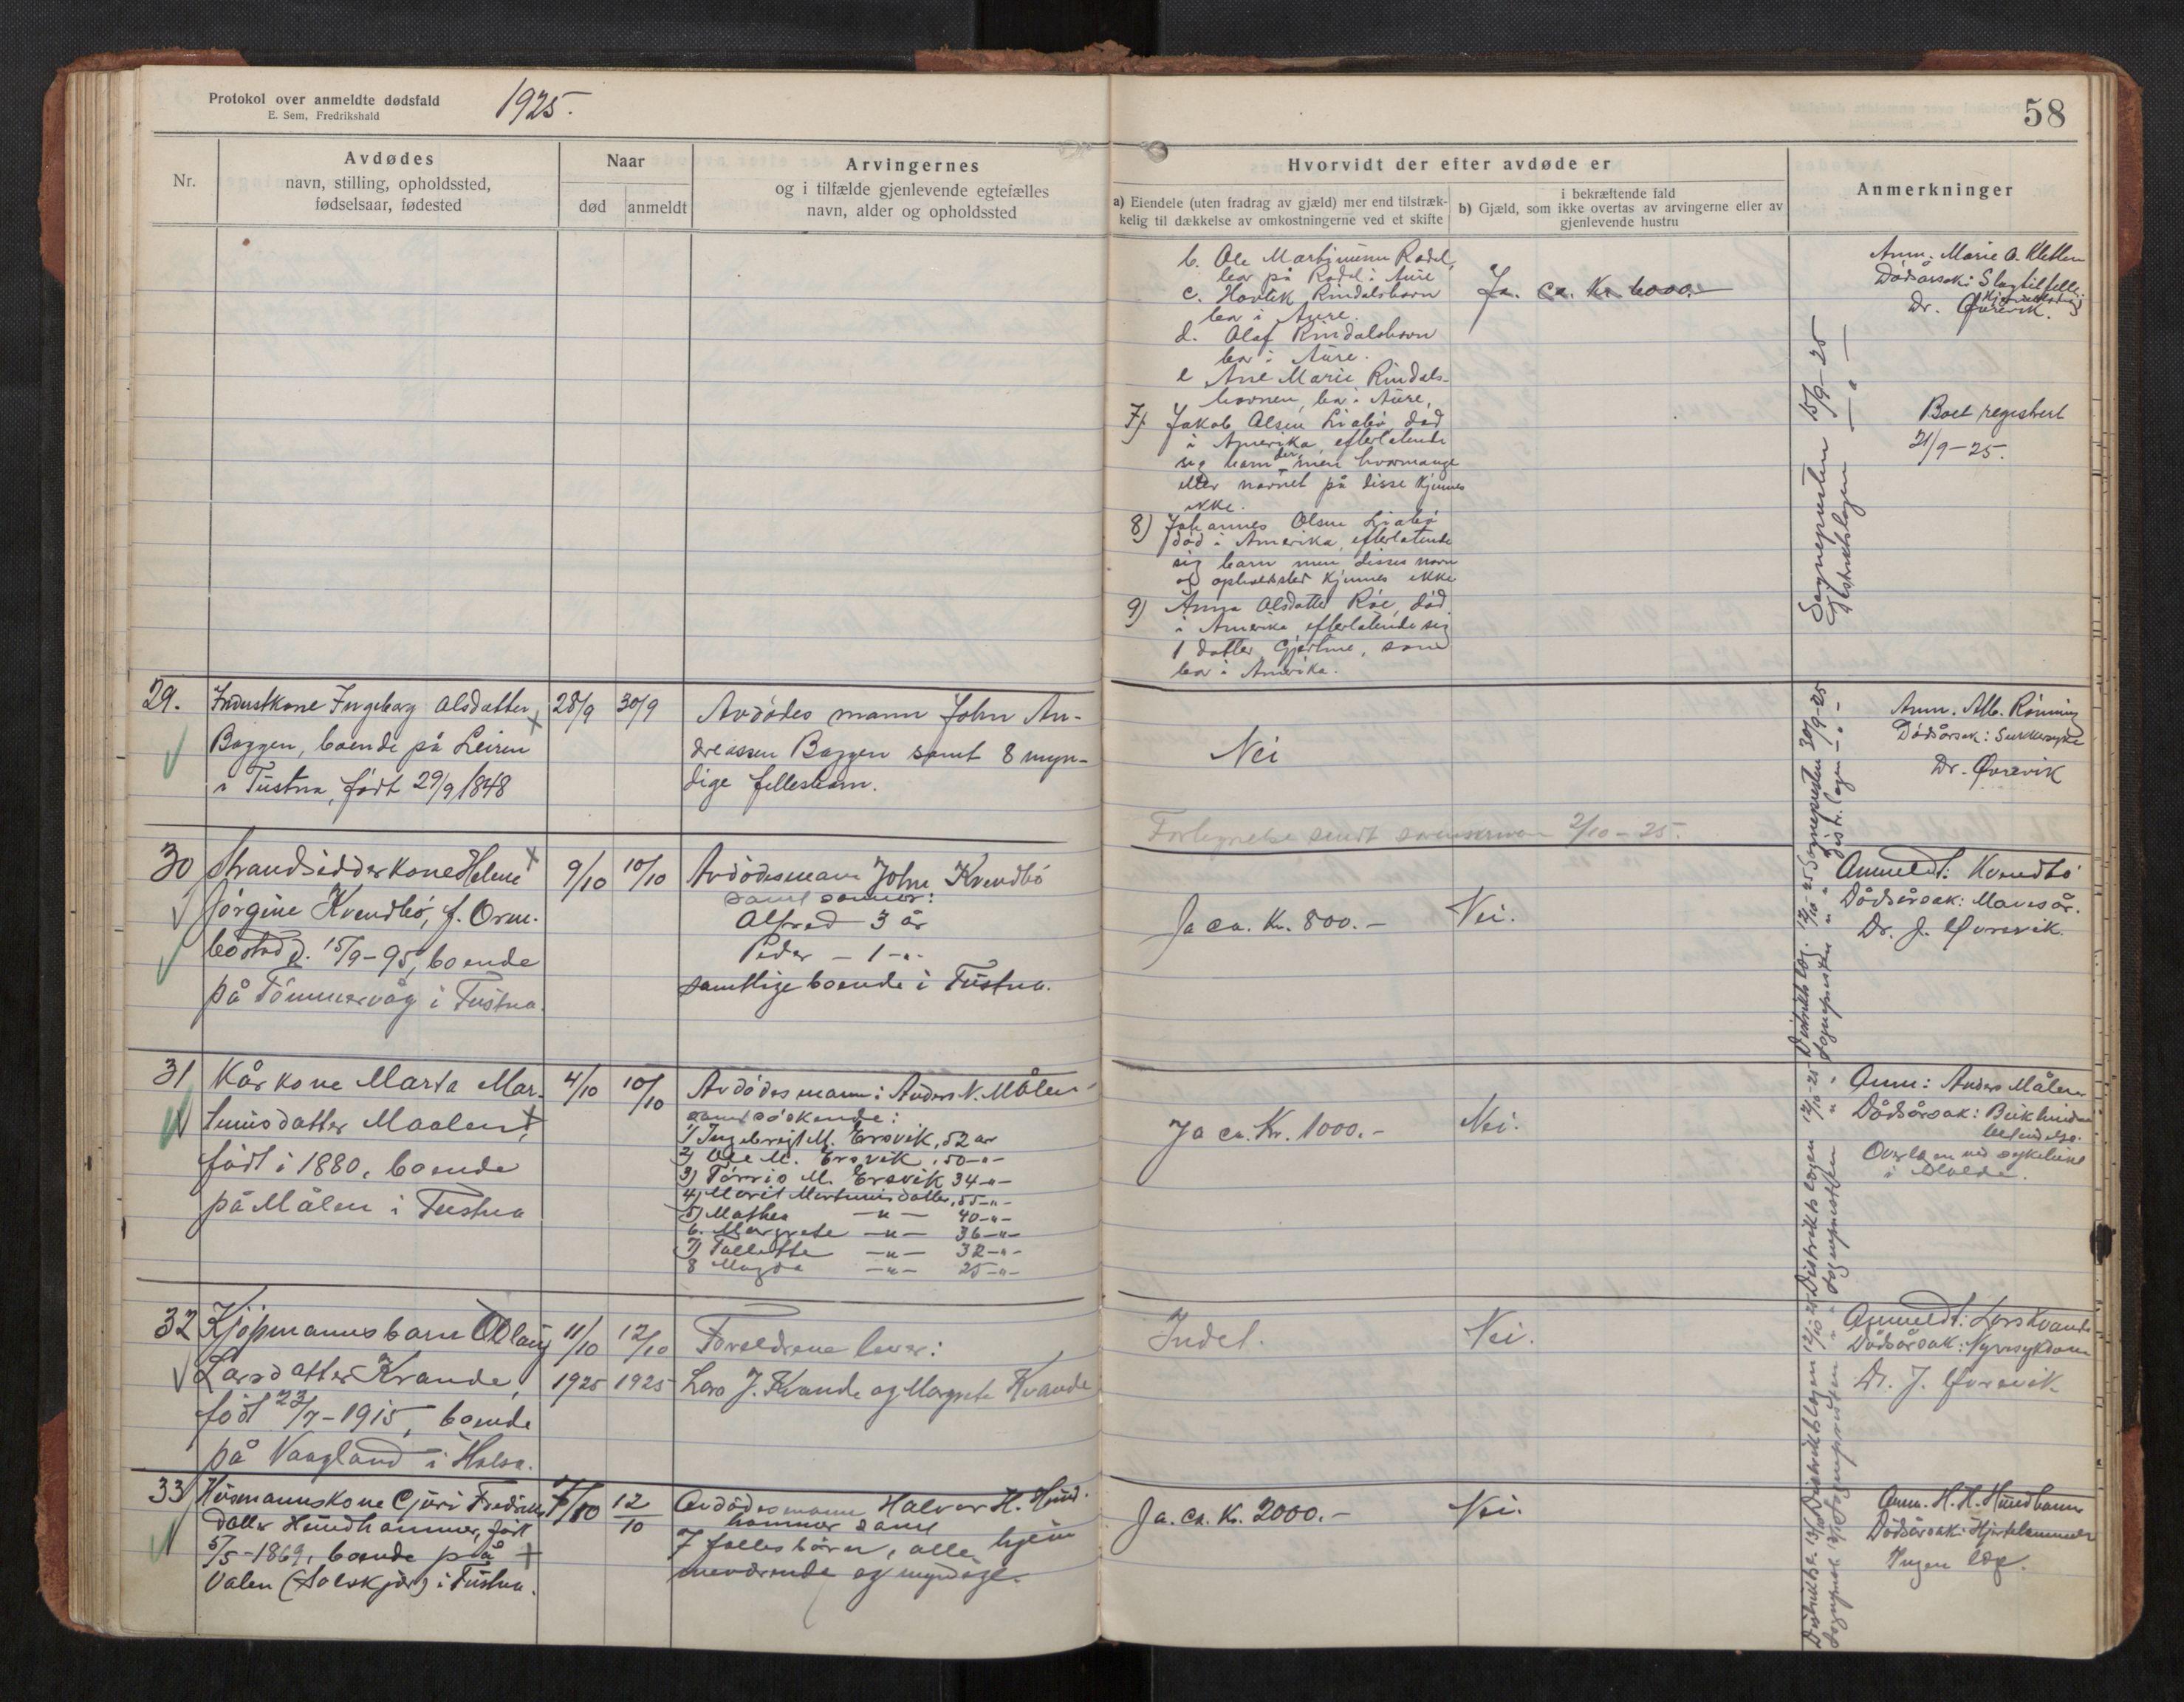 Protokol over anmeldte dødsfald
E. Sem, Fredrikshald
1925.
58
Nr.
Avdødes
navn, stilling, opholdssted,
fødselsaar, fødested
Naar
død
anmeldt
Arvingernes
og i tilfælde gjenlevende egtefælles
navn, alder og opholdssted
Hvorvidt der efter avdøde er
a) Eiendele (uten fradrag av gjæld) mer end tilstræk-
kelig til dækkelse av omkostningerne ved et skifte
i bekræftende fald
b) Gjæld, som ikke overtas av arvingerne eller av
gjenlevende hustru
Anmerkninger
b. Ole Martinusen Rodal,
bor på Rodal i Aure
c. Hovlik Rindalshavn
bor i Aure.
d. Olaf Rindalshavn
bor i Aure.
e Ane Marie Rindals-
havnen, bor i Aure,
7) Jakob Olsen Liabø, død
i Amerika, efterlatende
sig barn, men hvormange
eller navnet på disse kjennes
ikke.
8) Johannes Olsen Liabø
død i Amerika, efterlatende
sig barn men disses navn
og opholdssted kjennes ikke
9) Anna Olsdatter Röe, död
i Amerika efterlatende sig
1 datter, Gjertine, som
bor i Amerika.
Ja. ca. Kr. 6000.-
Anm. Marie O. Kletten
Dødsårsak: Slagtilfelle
Dr. Øvrevik.
Boet registrert
21/9-25.
Sogneprosten 15/9-25
Distriktslægen - " -
29.
Ingeborg Olsdatter
Baggen, boende på Leiren
i Tustna, født 29/9 1848
28/9
30/9
Avdødes mann John An-
dreassen Baggen samt 8 myn-
dige fellesbarn.
Nei
Anm. Alb. Rönning
Dødsårsak: Sukkersyke
Dr. Øvrevik
Fortegnelse sendt sorenskriveren 2/10-25.
30
Strandsidderkone Helene
Jörgine Kvendbö, f. Orm-
bostad d. 15/9-95, boende
på Tömmervåg i Tustna.
9/10
10/10
Avdödesmann John Kvendbö
samt sönner:
Alfred 3 år
Peder - 1 -"-
samtlige boende i Tustna.
Ja ca. Kr. 800.-
Nei.
Anmeldt: Kvendbö
Dødsårsak: Mavesår.
Dr. J. Øvrevik.
31
Kårkone Marta Mar-
tinusdatter Maalen,
født i 1880, boende
på Målen i Tustna
4/10
10/10
Avdödes mann: Anders N. Målen
samt söskende:
1) Ingebrigt M. Ersvik, 52 år
2) Ole M. Ersvik, 50 -"-
3) Törris M. Ersvik 34 -"-
4) Marit Martinusdatter, 55 -"-
5) Mathea -"- 40 -"-
6. Margrete -"- 36 -"-
7) -"- 32 -"-
8 Magda -"- 25 -"-
Ja ca. Kr. 1000.-
Nei.
Anm: Anders Målen
Dødsårsak:
Overlægen ved sykehuset
i Molde.
32
Kjöpmannsbarn Olaug
Larsdatter Kvande,
födt 23/7-1915, boende
på Vaagland i Halsa.
11/10
1925
12/10
1925
Foreldrene lever:
Lars J. Kvande og Margrete Kvande
Intet.
Nei.
Anmeldt: Lars Kvande
Dødsårsak: Nyresykdom
Dr. J. Øvrevik
33
Husmannskone Guri Fredriks-
datter Hundhammer, født
5/5-1869, boende på
Valen (Solskjær) i Tustna.
12
10
Avdödesmann Halvor H. Hund-
hammer samt
7 fellesbörn, alle hjem-
meværende og myndige.
Ja. ca. Kr. 2000.-
Nei.
Anm. H. H. Hundhammer
Dødsårsak: Hjertelammelse
Ingen læge.